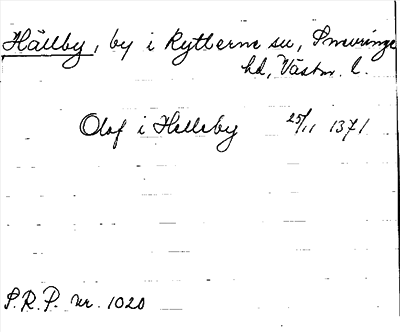 Hällby, by i Rytterne sn, Snevringe
hd, Västm. l.
Olof i Helleby 25/11 1371
S.R.P. nr. 1020